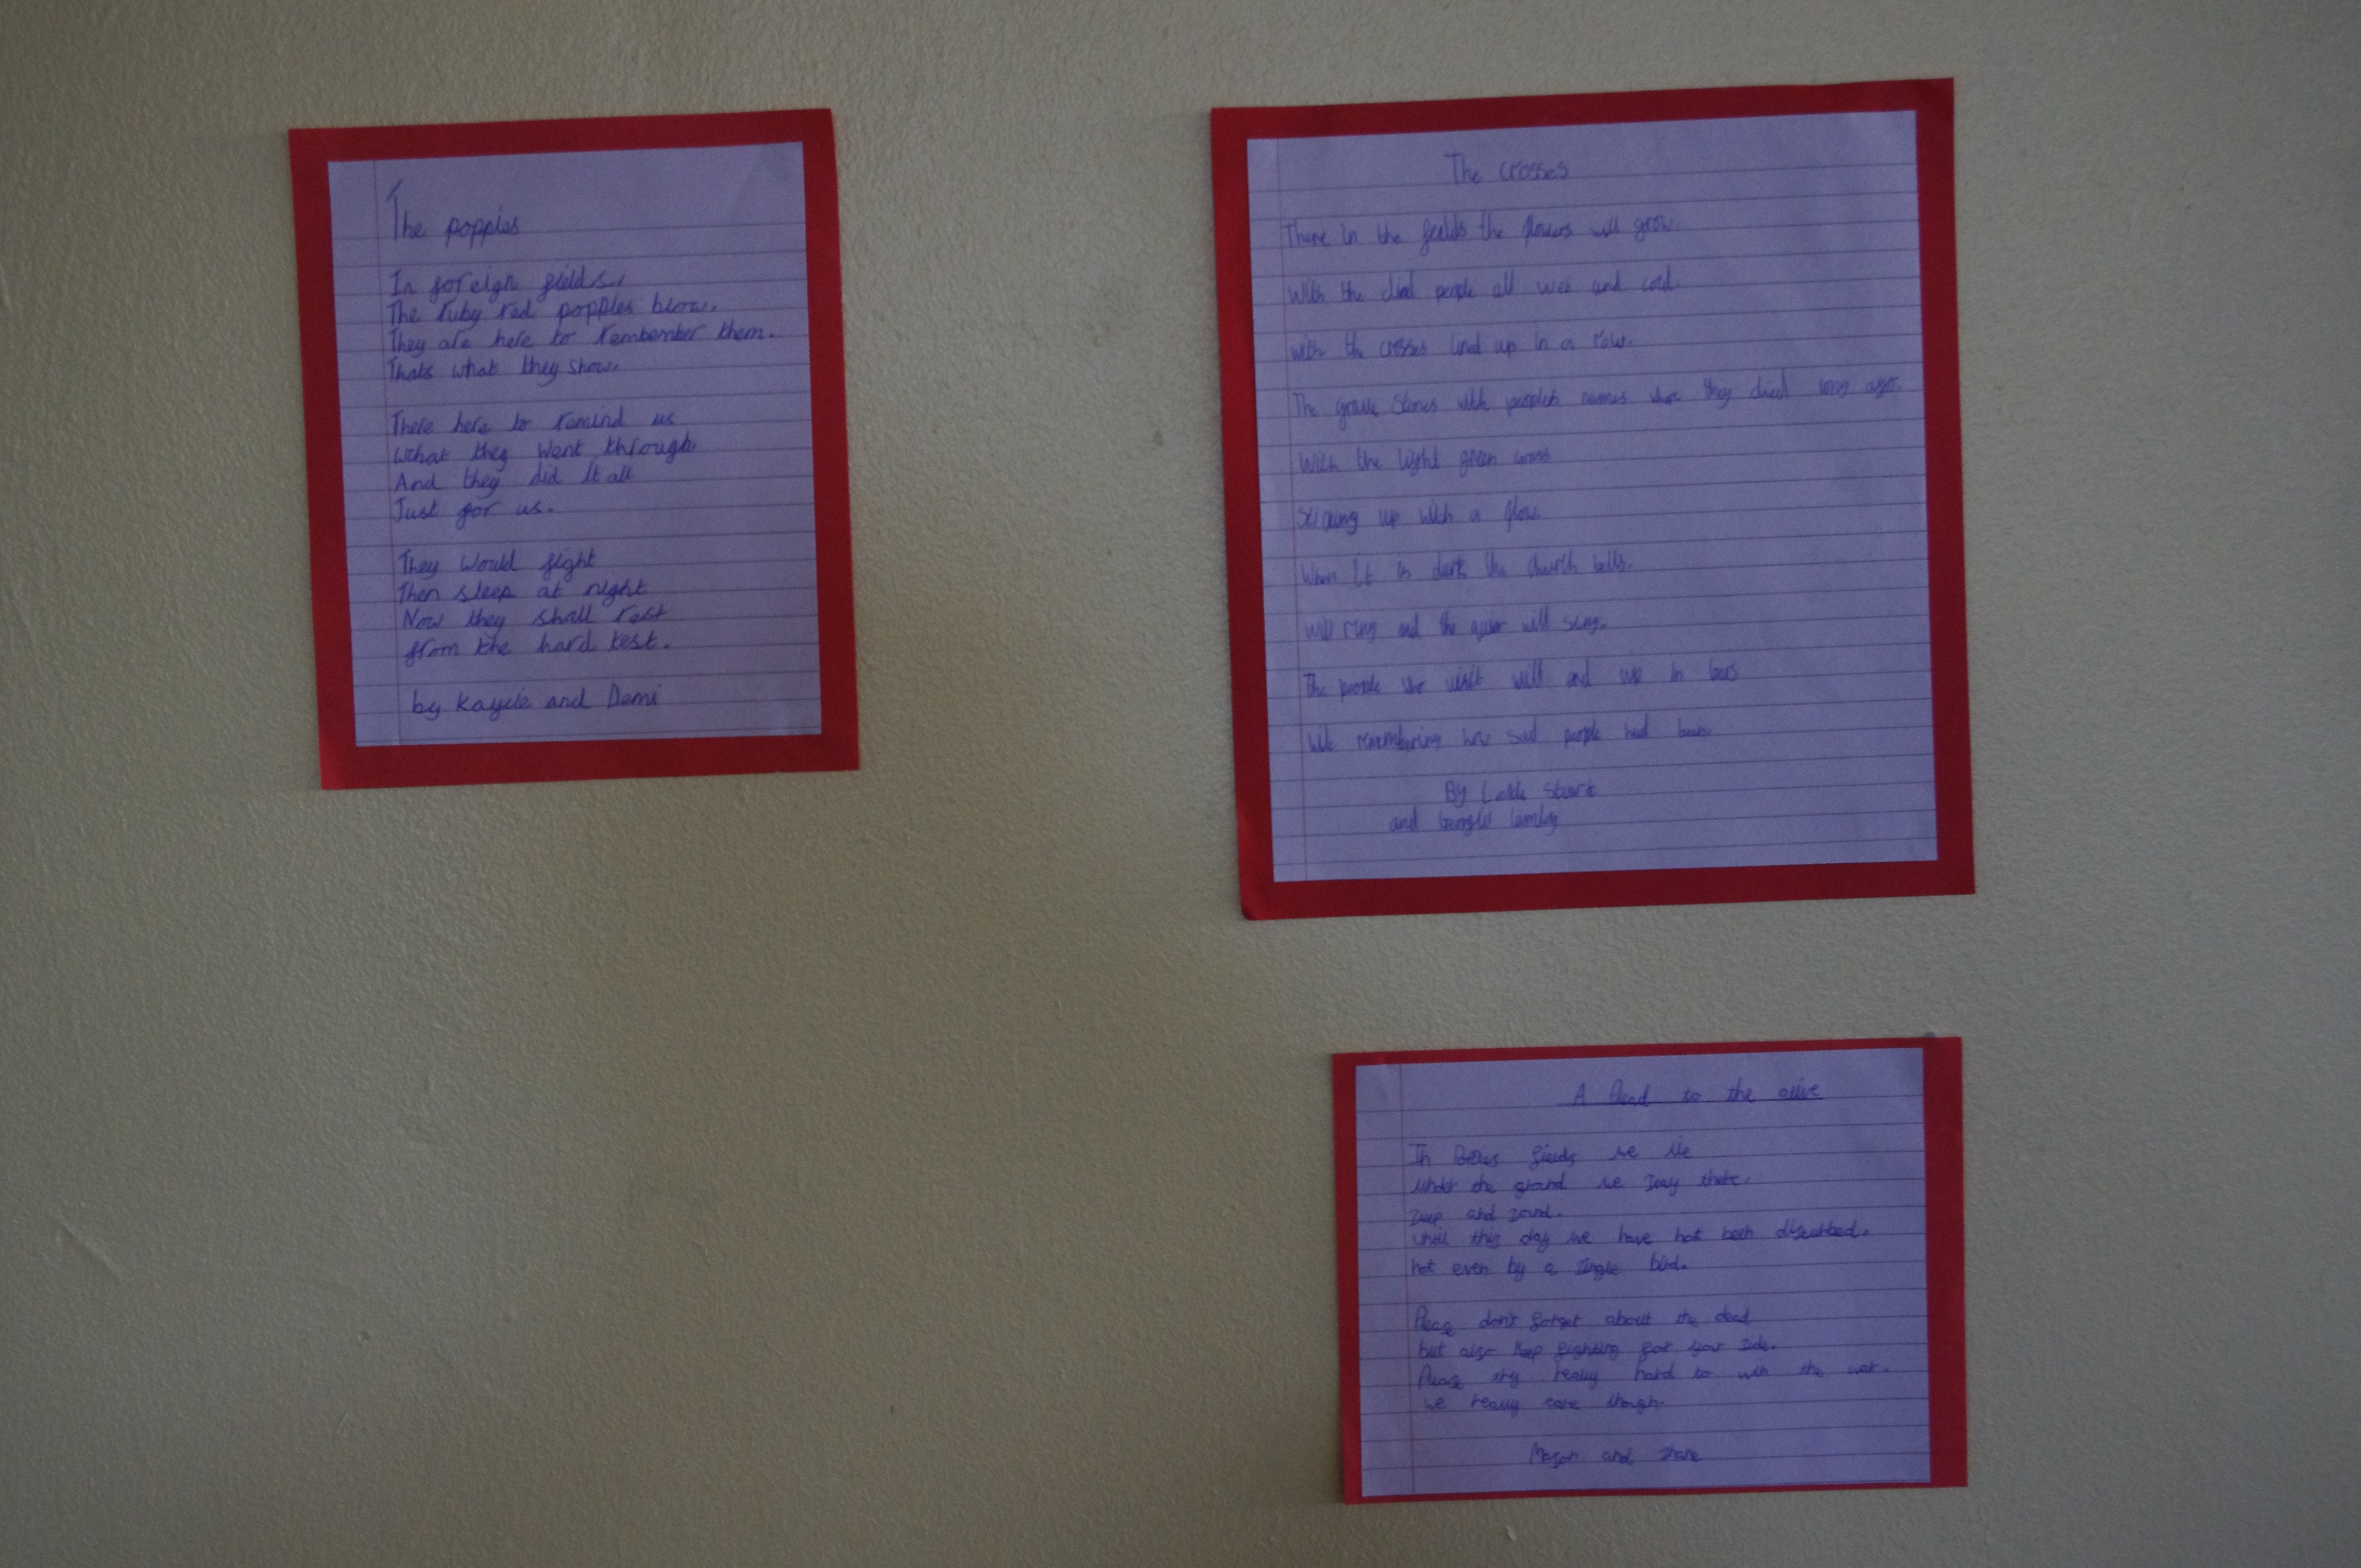 The poppies
In foreign fields,
The ruby red poppies blow.
They are here to rembember them.
Thats what they show.
There here to remind us
what they went through
And they did it all
Just for us.
They would fight
Then sleep at night
Now they shall rest
from the hard test.
by Kaycie and Demi
The crosses
There in the the flowers will grow
With the people all wet and cold.
with the crosses lined up in a
The grave stones with names they long ago.
With the light green
up with a
When it is dark the church bells.
will ring and the will sing.
The people visit will end up in
remembering how sad people had been.
By Stuart
and
A Plead to the alive
In fields we lie
under the we lay there.
and
until this day we have not been
not even by a single bird.
don't forget about the dead
but also keep fighting for your side.
try really hard to win the war.
we really care though.
Mason and